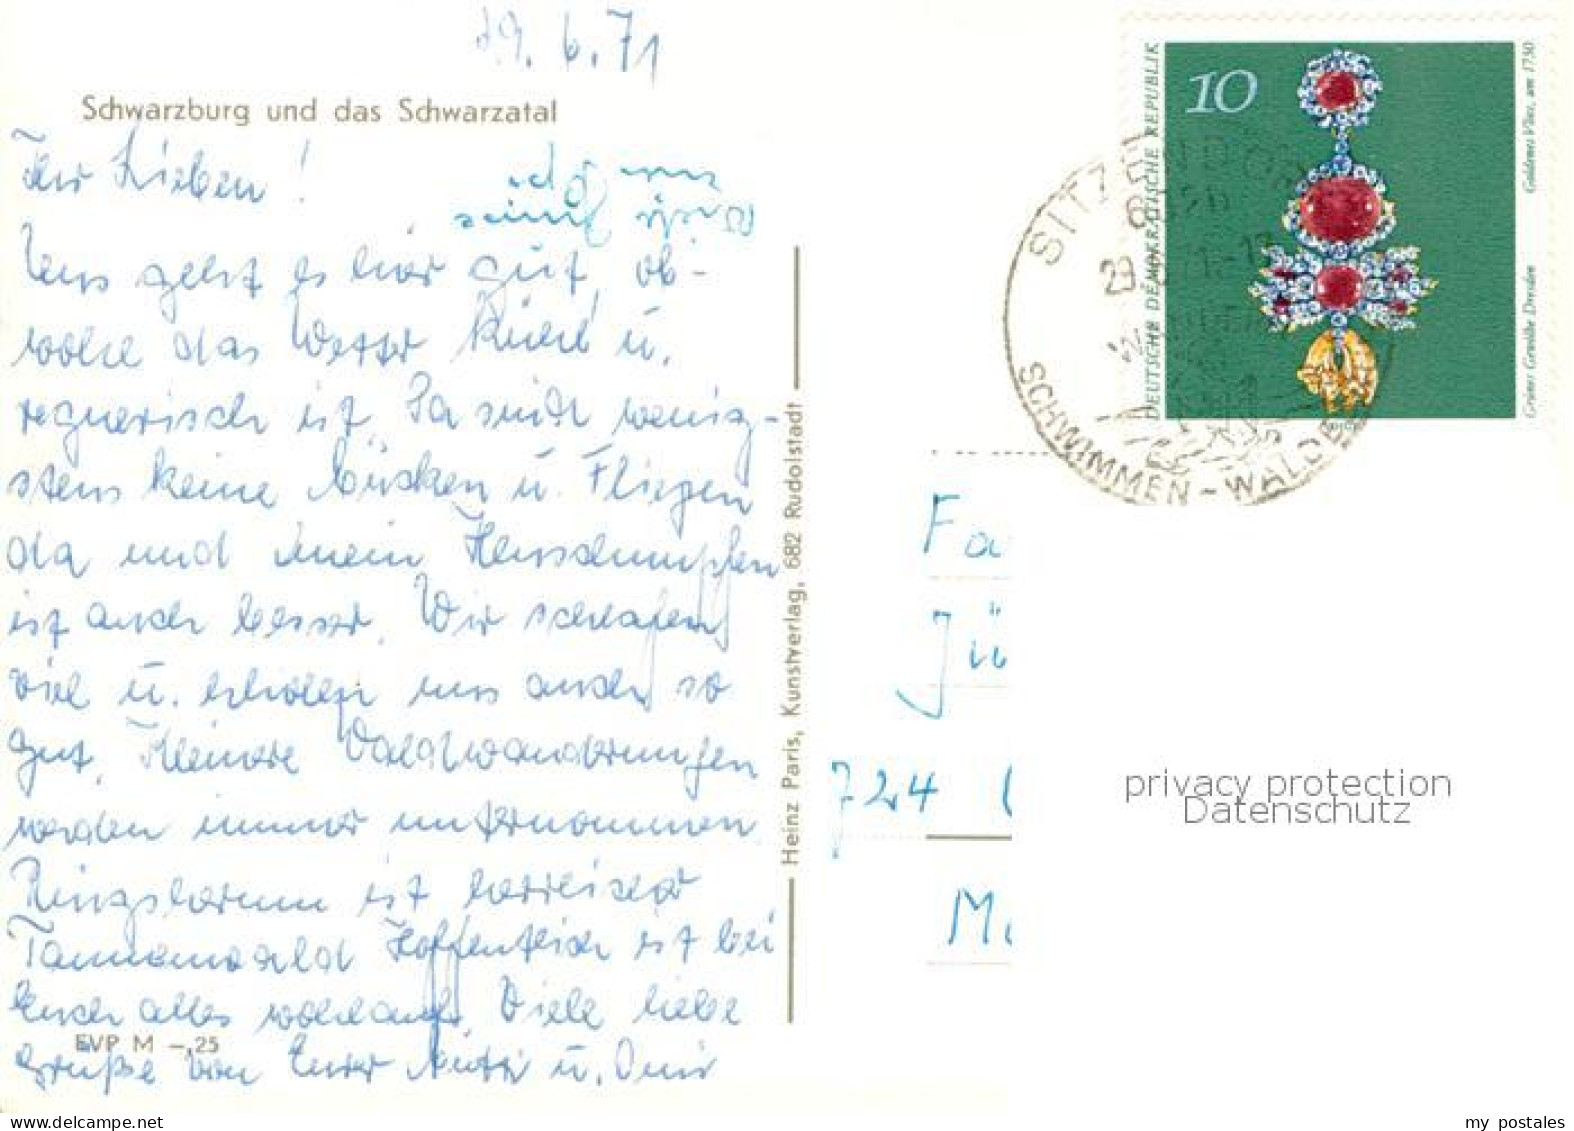 29.6.71
Schwarzburg und das Schwarzatal
Ihr Lieben!
Uns geht es hier gut, ob-
wohl das Wetter kühl u.
regnerisch ist. Da sind wenig-
stens keine Mücken u. Fliegen
da und mein Heuschnupfen
ist auch besser. Wir schlafen
viel u. erholen uns auch so
gut. Kleinere Waldwanderungen
werden immer unternommen
Ringsherum ist herrlicher
Tannenwald Hoffentlich ist bei
Euch alles wohlauf. Viele liebe
Grüße von Eurer Mutti u.
EVP M -,25
Heinz Paris, Kunstverlag, 682 Rudolstadt
10
DEUTSCHE DEMOKRATISCHE REPUBLIK
Goldenes Vlies, um 1730
Grünes Gewölbe Dresden
SITZENDORF
SCHWIMMEN - WALD
Fa
Jü
724
privacy protection
Datenschutz
my postales